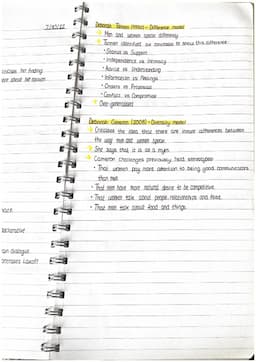 Deborah Tannen (1990) - Difference model
Men and women speak differently
Tannen identified six contrasts to show this difference
• Status vs Support
• Independence vs Intimacy
• Advice vs Understanding
• Information vs Feelings
• Orders vs Proposals
• Conflict vs Compromise
Over-generalised
Deborah Cameron (2008) - Diversity model
the idea that there are innate differences between
the way men and women speak.
She says that it is as a myth
Cameron challenges previously held stereotypes
• That women pay more attention to being good communicators
than men
• That men have more natural desire to be competitive.
• That women talk about people, relationships and feels.
• That men talk about food and things.